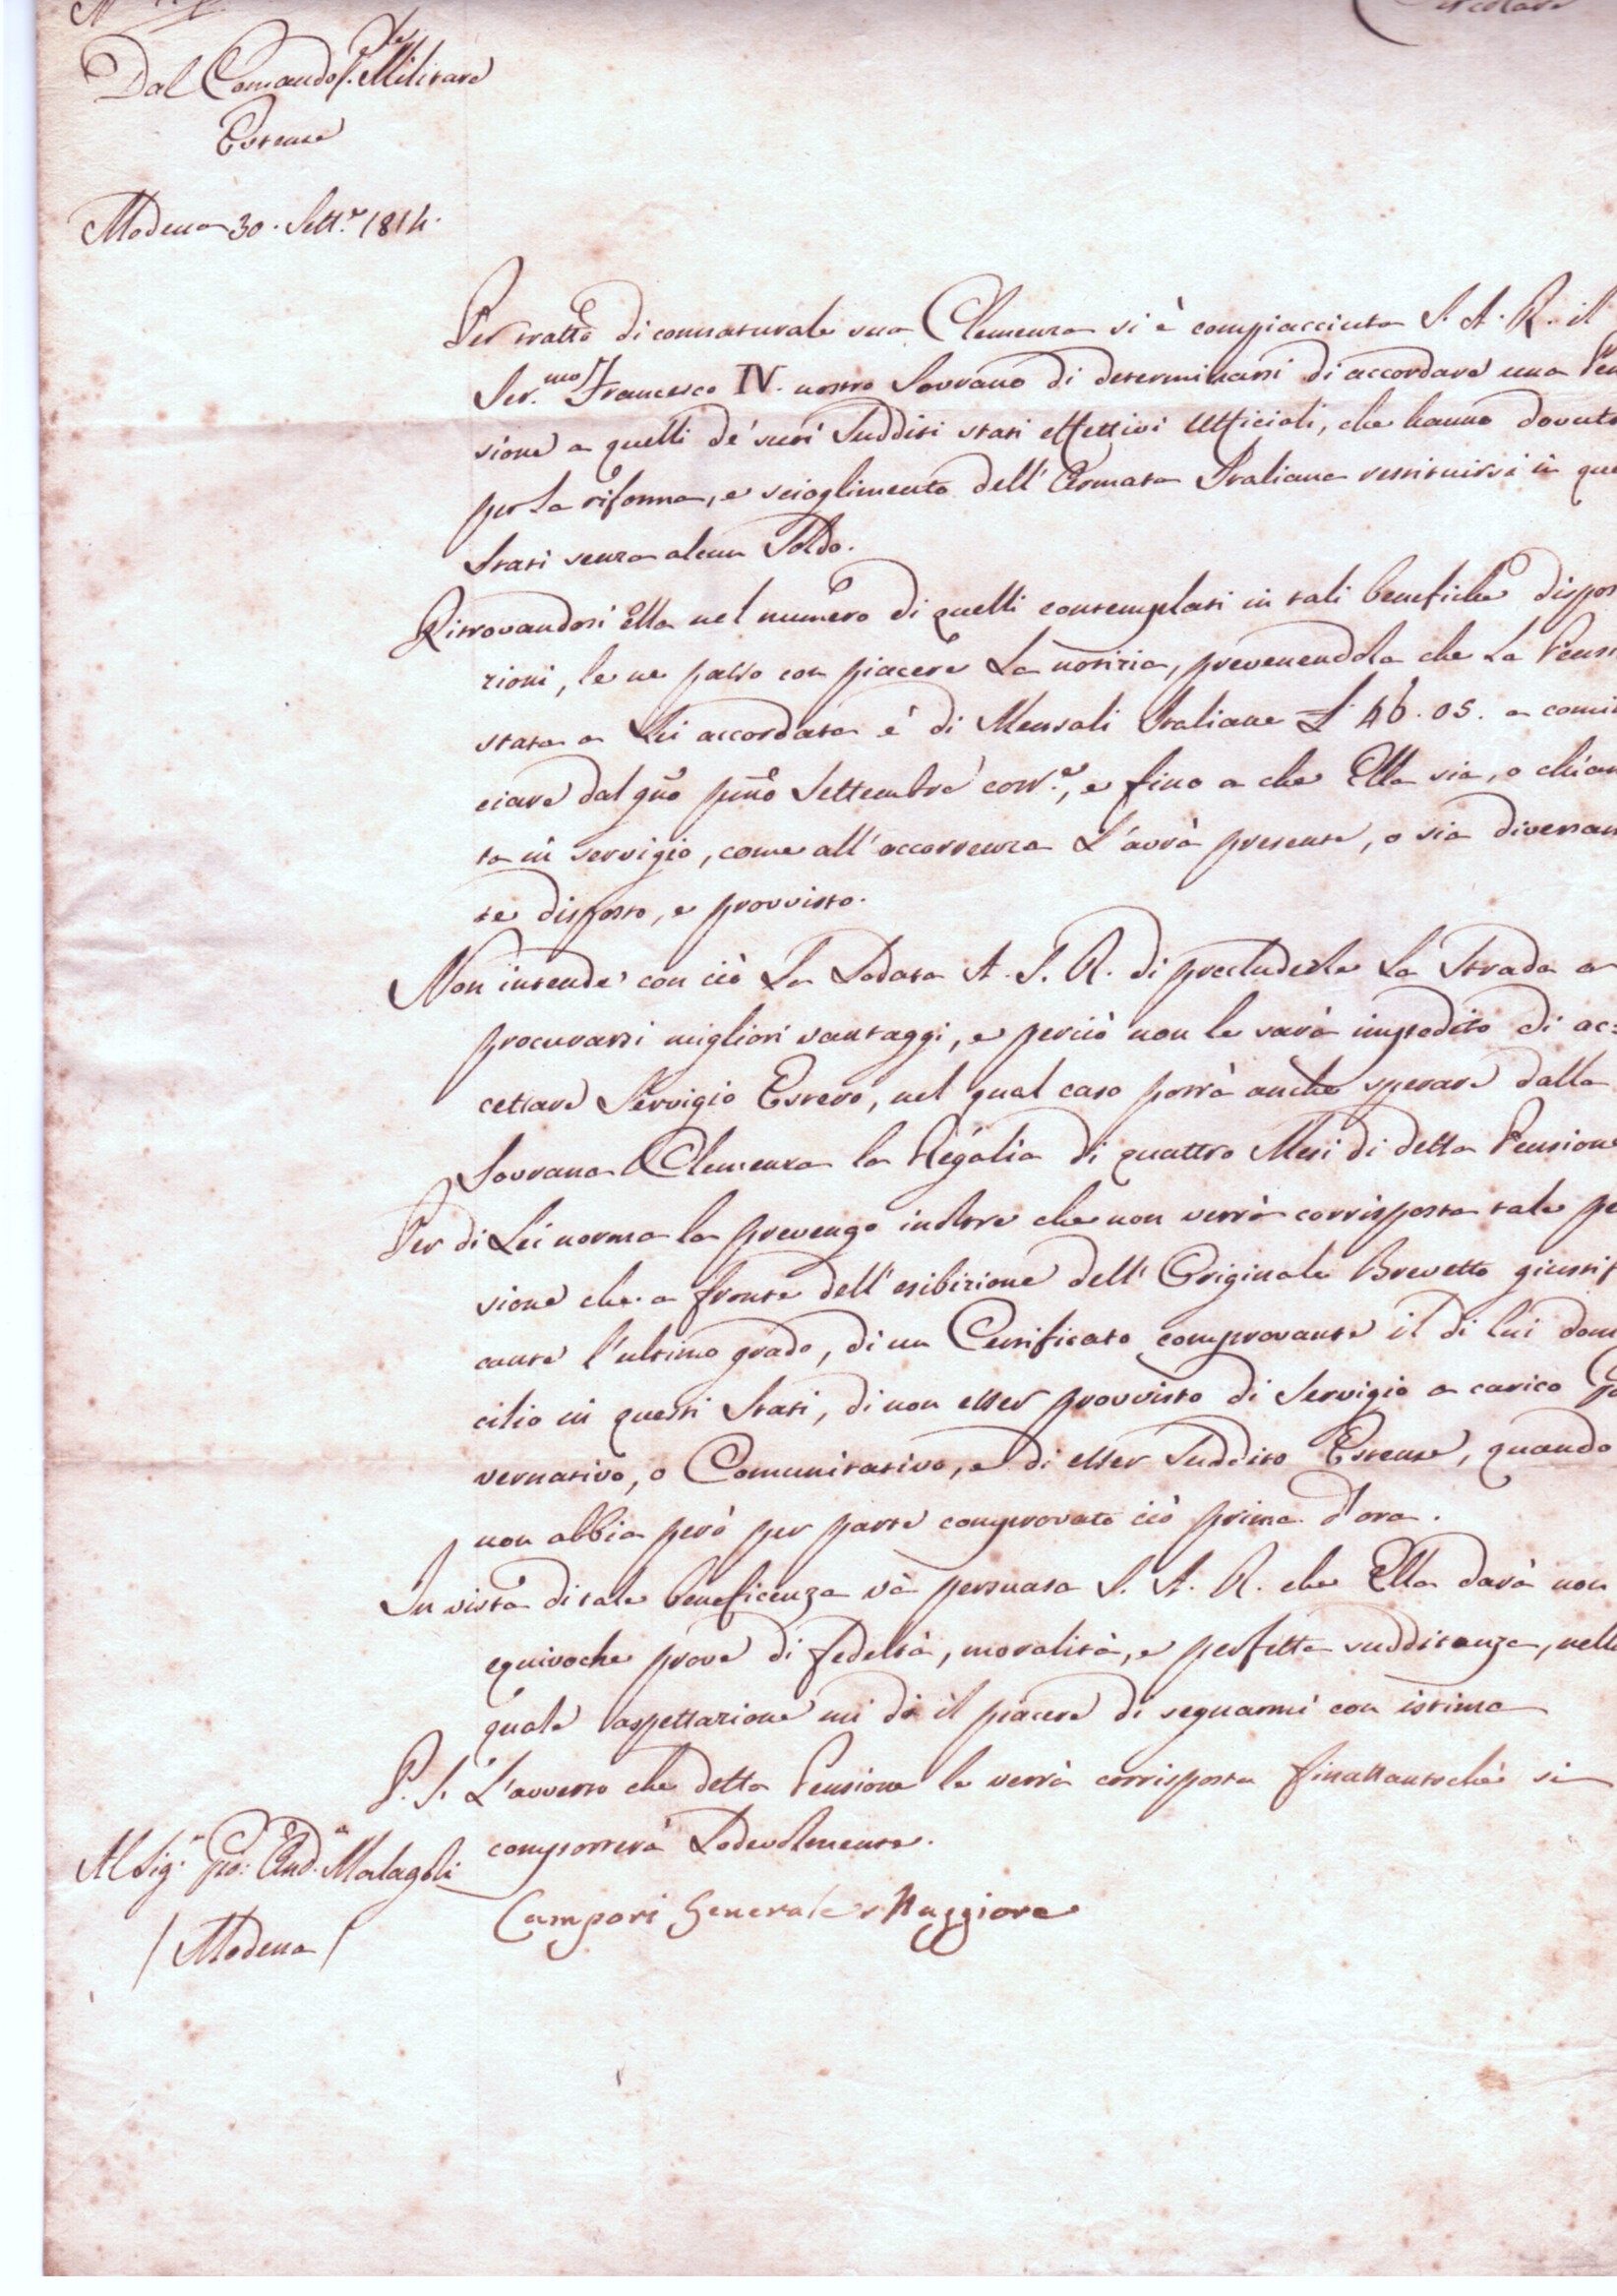 Circolare
Dal Comando G.le Militare
Estense
Modena 30. Sett.e 1814.
Per tratto di connaturale sua Clemenza si è compiacciuta S. A. R. il
Ser.mo Francesco IV. nostro Sovrano di determinarsi di accordare una Pen
sione a quelli de' suoi Sudditi stati effettivi Ufficiali, che hanno dovuto
per la riforma, e scioglimento dell' Armata Italiana restituirsi in que
Stati senza alcun Soldo.
Ritrovandosi Ella nel numero di quelli contemplati in tali benefiche dispos
zioni, le ne passo con piacere la notizia, prevenendola che la Pensi
stata a Lei accordata è di Mensali Italiane £ 46.05. a comin
ciare dal gño pmõ Settembre corr.e, e fino a che Ella sia, o chiam
ta in servigio, come all' occorrenza L'avrà presente, o sia diversam
te disposto, e provvisto.
Non intende con ciò la Lodata A. S. R. di precluderle la Strada a
procurarsi migliori vantaggi, e perciò non le sarà impedito di ac=
cettare Servigio Estero, nel qual caso potrà anche sperare dalla
Sovrana Clemenza la Regalia di quattro Mesi di detta Pensione
Per di Lei norma la prevengo inoltre che non verrà corrisposta tale pe
sione che a fronte dell' esibizione dell' Originale Brevetto giustif
cante l'ultimo grado, di un Certificato comprovante il di lui dom
cilio in questi Stati, di non esser provvisto di Servigio a carico Go
vernativo, o Comunitativo, e di esser Suddito Estense, quando
non abbia però per parte comprovato ciò prima d'ora.
In vista di tale beneficenza và persuasa S. A. R. che Ella darà non
equivoche prove di fedeltà, moralità, e perfetta sudditanza, nella
quale aspettazione mi dò il piacere di segnarmi con istima
P. S. L'avverto che detta Pensione le verrà corrisposta finattantochè si
comporterà Lodevolmente.
Al Sig.r And.a Malagoli
Campori Generale Maggiore
/ Modena /